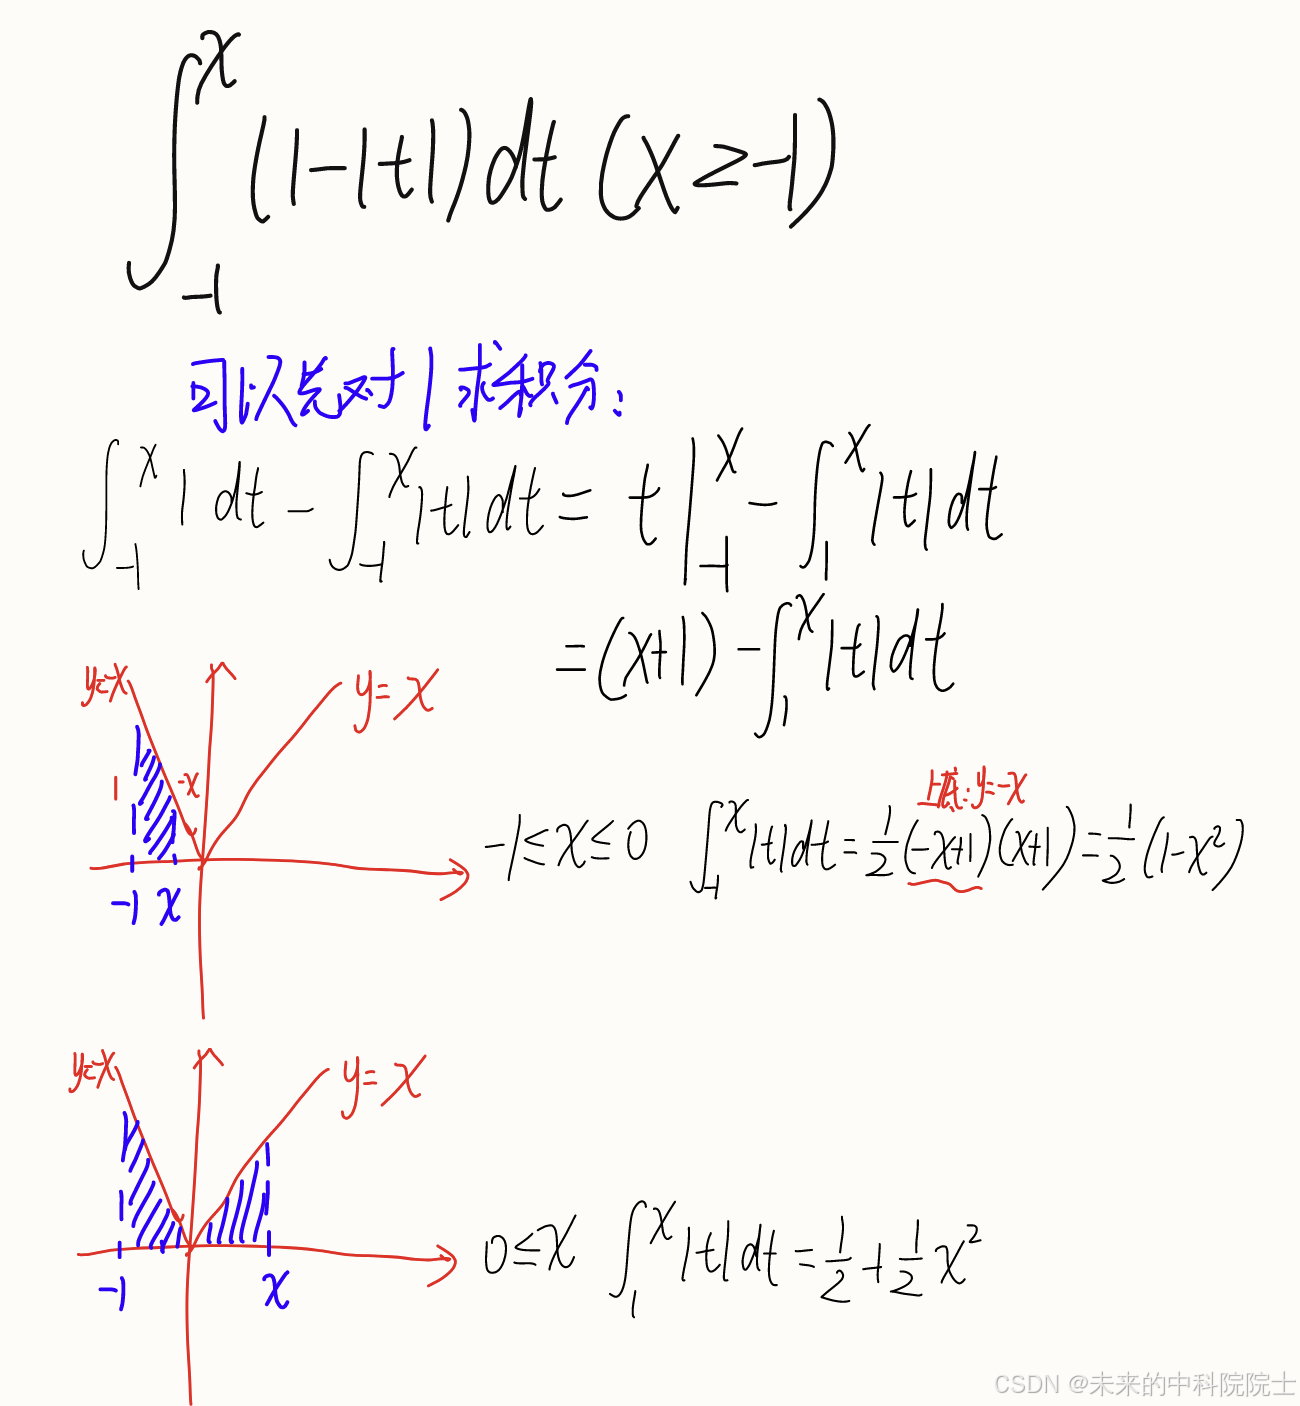 ∫_{-1}^{x} (1-|t|)dt (x≥-1)
可以先对1求积分:
∫_{-1}^{x} 1 dt - ∫_{-1}^{x} |t|dt = t|_{-1}^{x} - ∫_{1}^{x} |t|dt
=(x+1) - ∫_{1}^{x} |t|dt
y=-x
y=x
1
-x
-1 x
上底:y=-x
-1≤x≤0 ∫_{-1}^{x} |t|dt = 1/2 (-x+1)(x+1) = 1/2 (1-x²)
y=-x
y=x
-1
x
0≤x ∫_{1}^{x} |t|dt = 1/2 + 1/2 x²
CSDN @未来的中科院院士